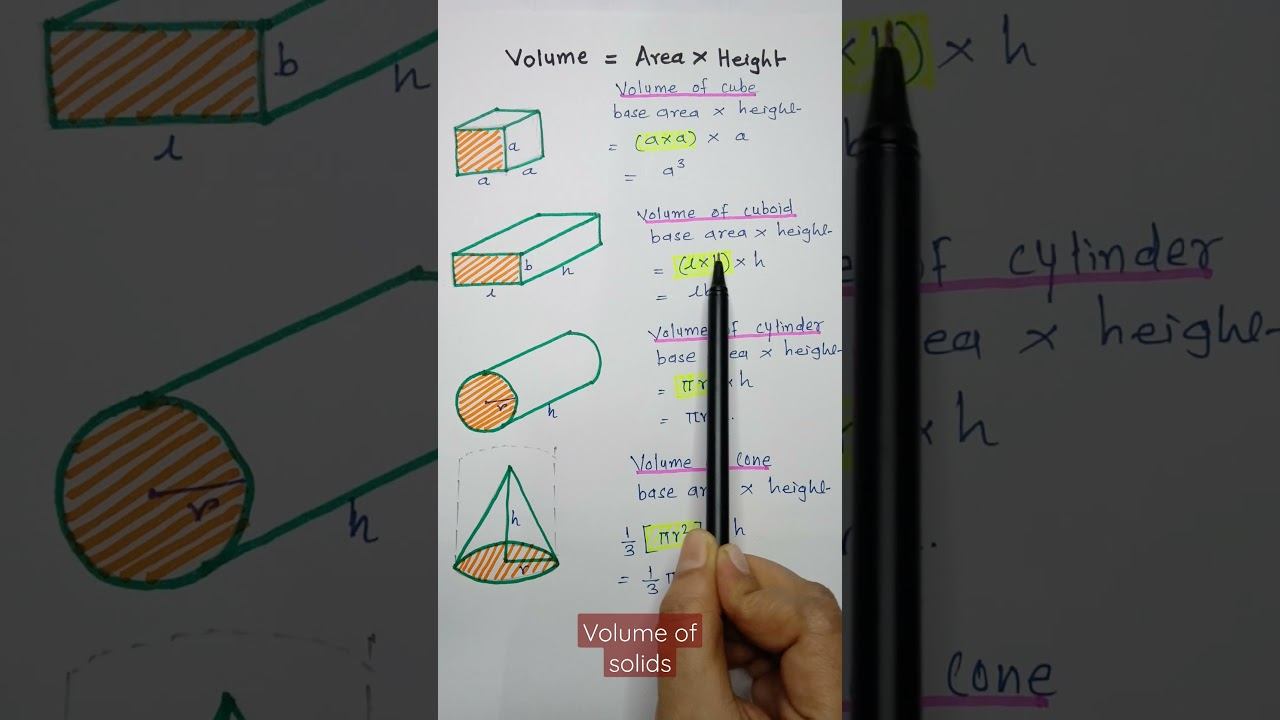 Volume = Area × Height
Volume of cube
base area × height
= (a×a) × a
= a³
a
a
a
Volume of cuboid
base area × height
= (l× ) × h
= l
b
h
l
Volume of cylinder
base area × height
= πr × h
= πr
r
h
Volume cone
base ar × height
1/3 [πr²] h
= 1/3 π
h
r
Volume of
solids
b
h
l
) × h
of cylinder
ea × height
× h
r
h
cone